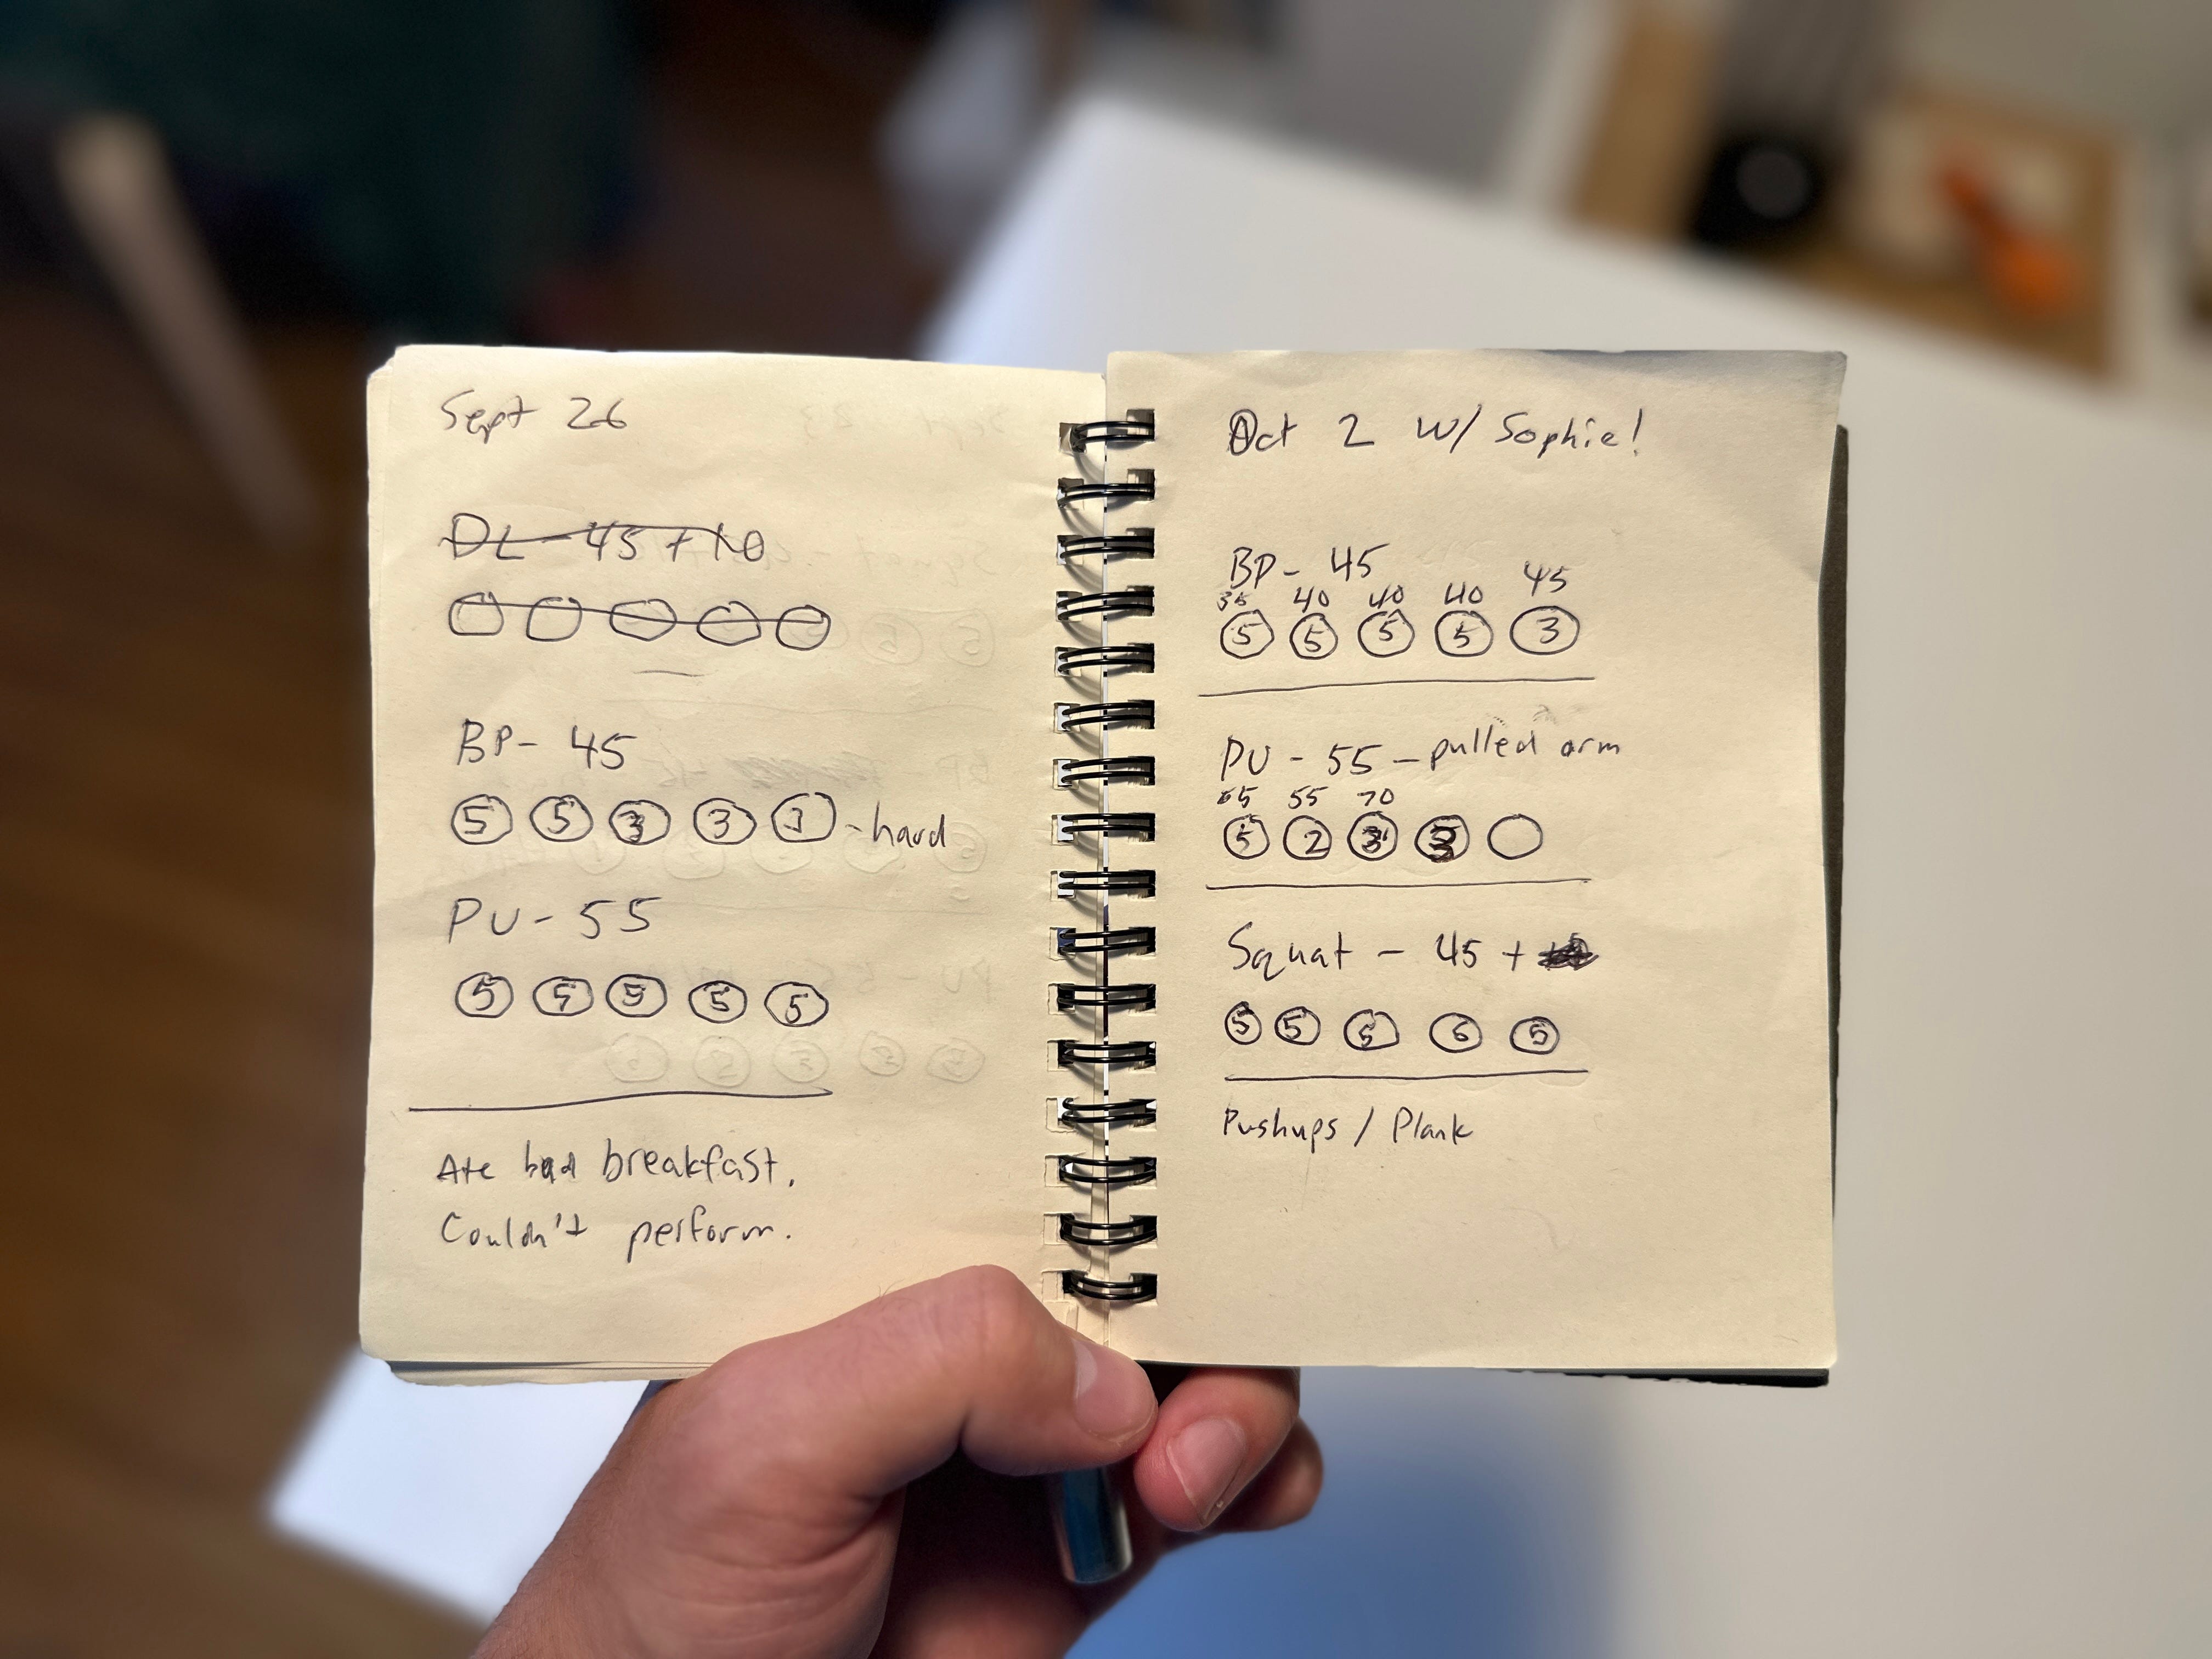 Sept 26
DL - 45 + 10
BP - 45
5 5 3 3 3 - hard
PU - 55
5 5 5 5 5
Ate bad breakfast.
Couldn't perform.
Oct 2 w/ Sophie!
BP - 45
35 40 40 40 45
5 5 5 5 3
PU - 55 - pulled arm
55 70
5 2 3 3
Squat - 45 +
5 5 5 5
Pushups / Plank